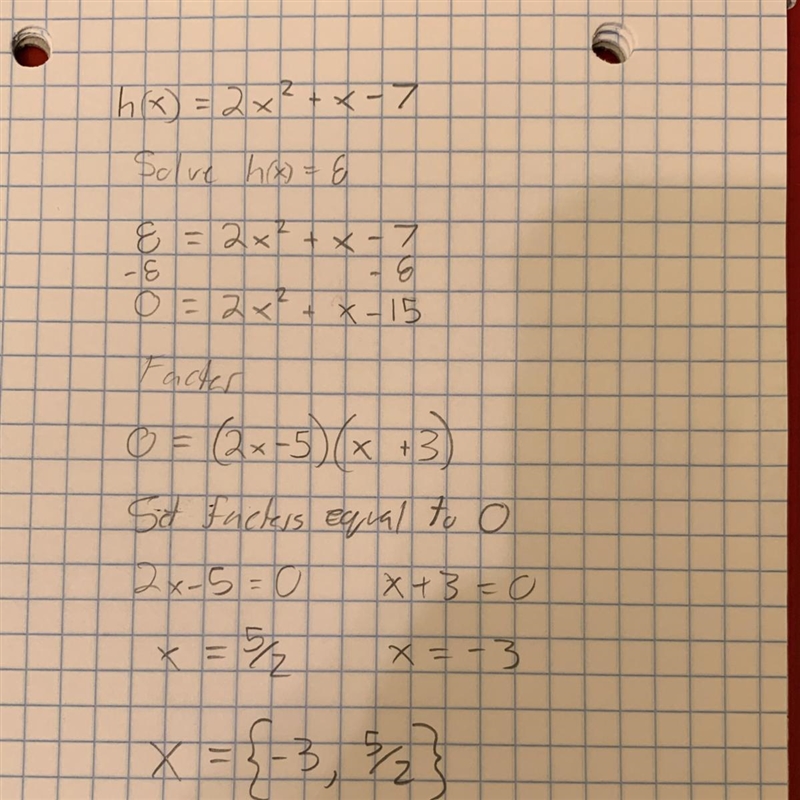 h(x) = 2x² + x - 7
Solve h(x) = 8
8 = 2x² + x - 7
-8 - 8
0 = 2x² + x - 15
Factor
0 = (2x - 5)(x + 3)
Set factors equal to 0
2x - 5 = 0 x + 3 = 0
x = 5/2 x = -3
x = {-3, 5/2}